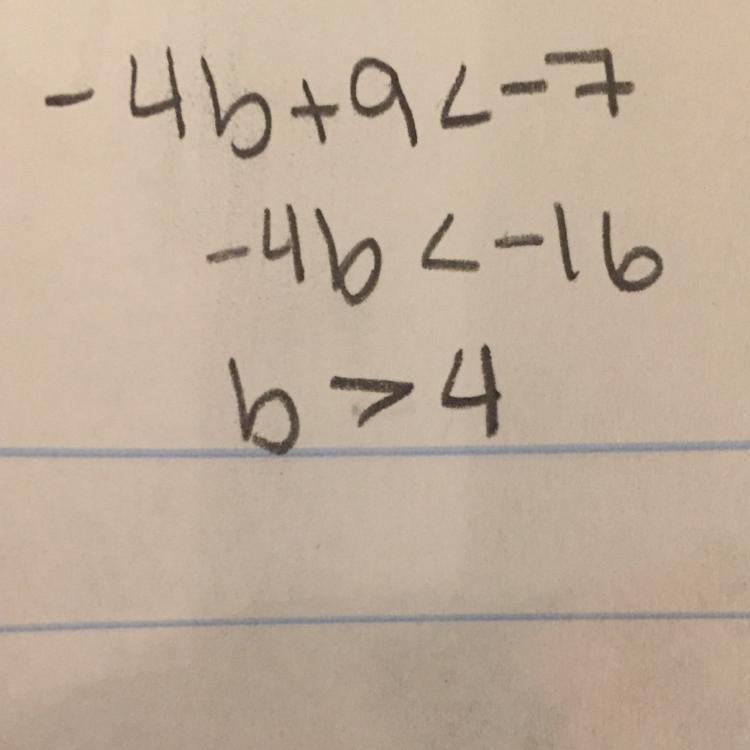 -4b+9<-7
-4b<-16
b>4